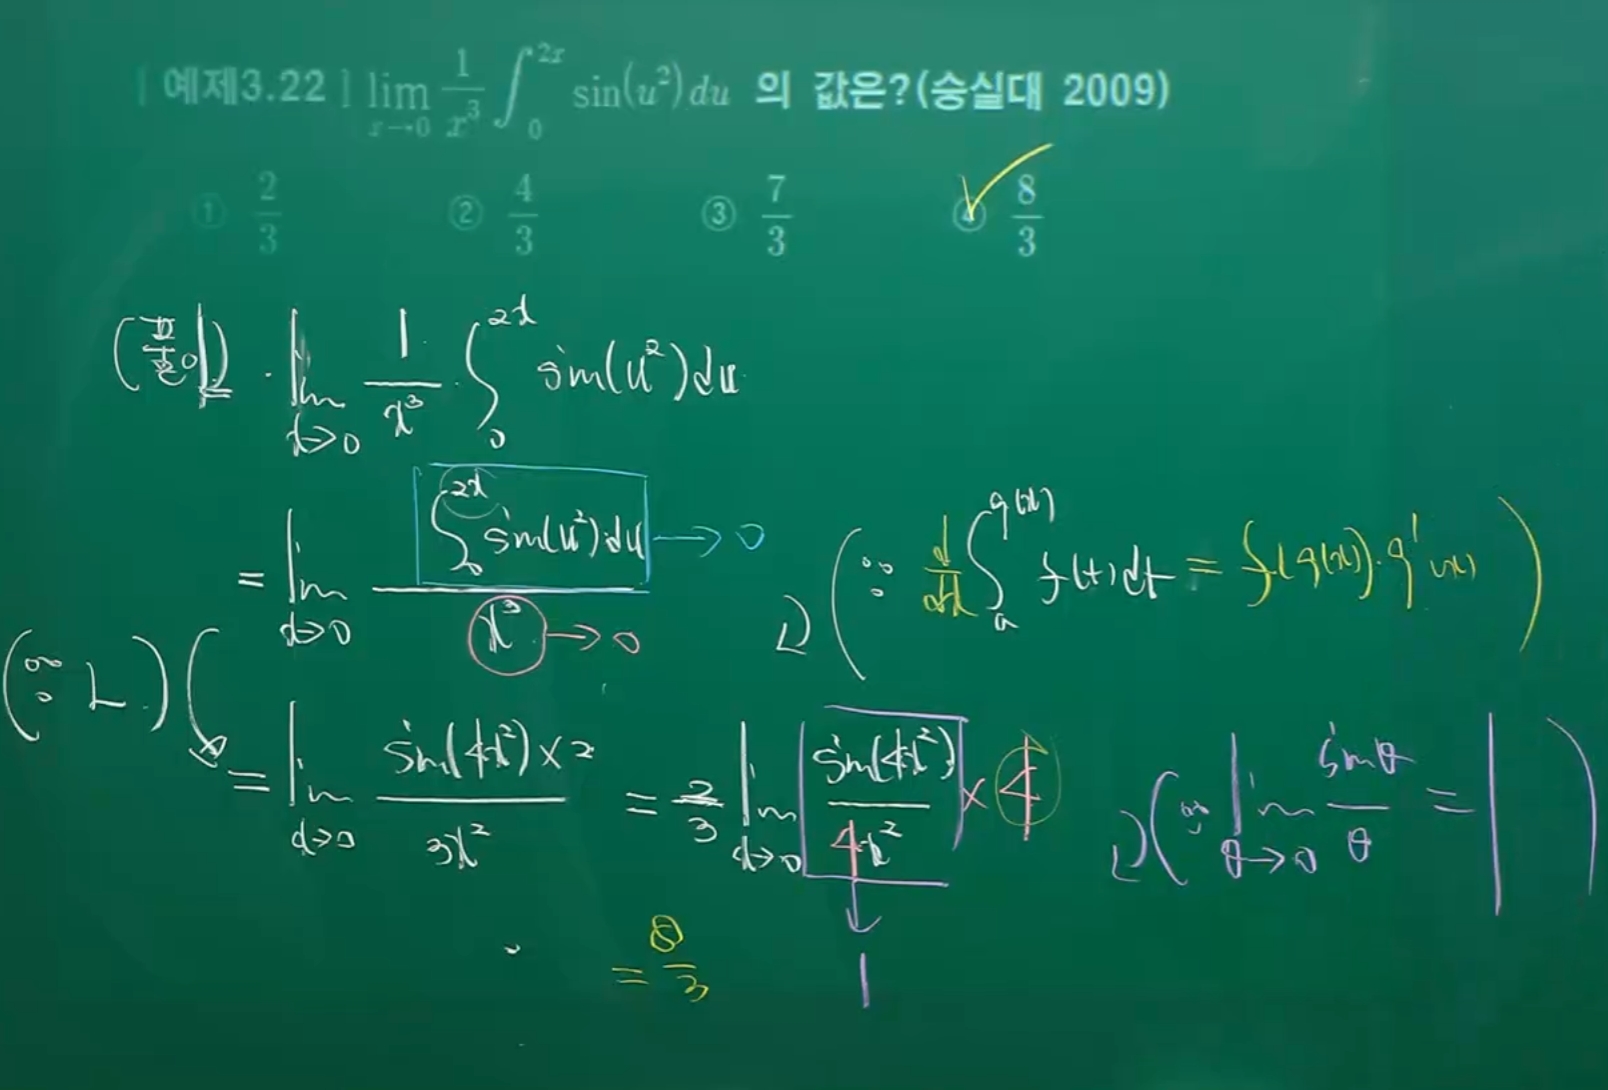 [예제3.22] lim x→0 1/x³ ∫₀^2x sin(u²) du 의 값은?(숭실대 2009)
① 2/3 ② 4/3 ③ 7/3 ④ 8/3
lim x→0 1/x³ · ∫₀^2x sin(u²)du
= lim x→0 ∫₀^2x sin(u²)du / x³ → 0 → 0
(∵ d/dx ∫ₐ^g(x) f(t)dt = f(g(x))·g'(x))
(∵ L)
= lim x→0 sin(4x²)×2 / 3x² = 2/3 lim x→0 sin(4x²) / 4x² × 4
(∵ lim θ→0 sinθ/θ = 1)
↓ 1
= 8/3